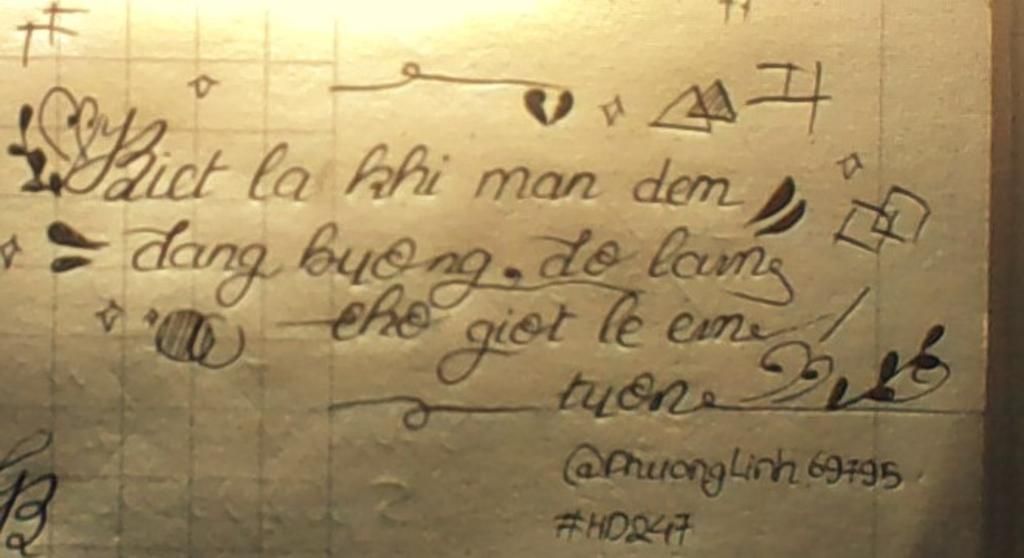 Biet la khi man dem
dang buong. do lamg
cho giot le em
tuon
@PhuongLinh 69795
#HD247
B